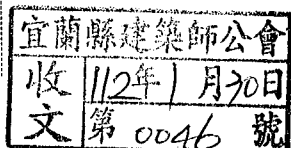 宜蘭縣建築師公會
收文
112年1月30日
第0046號